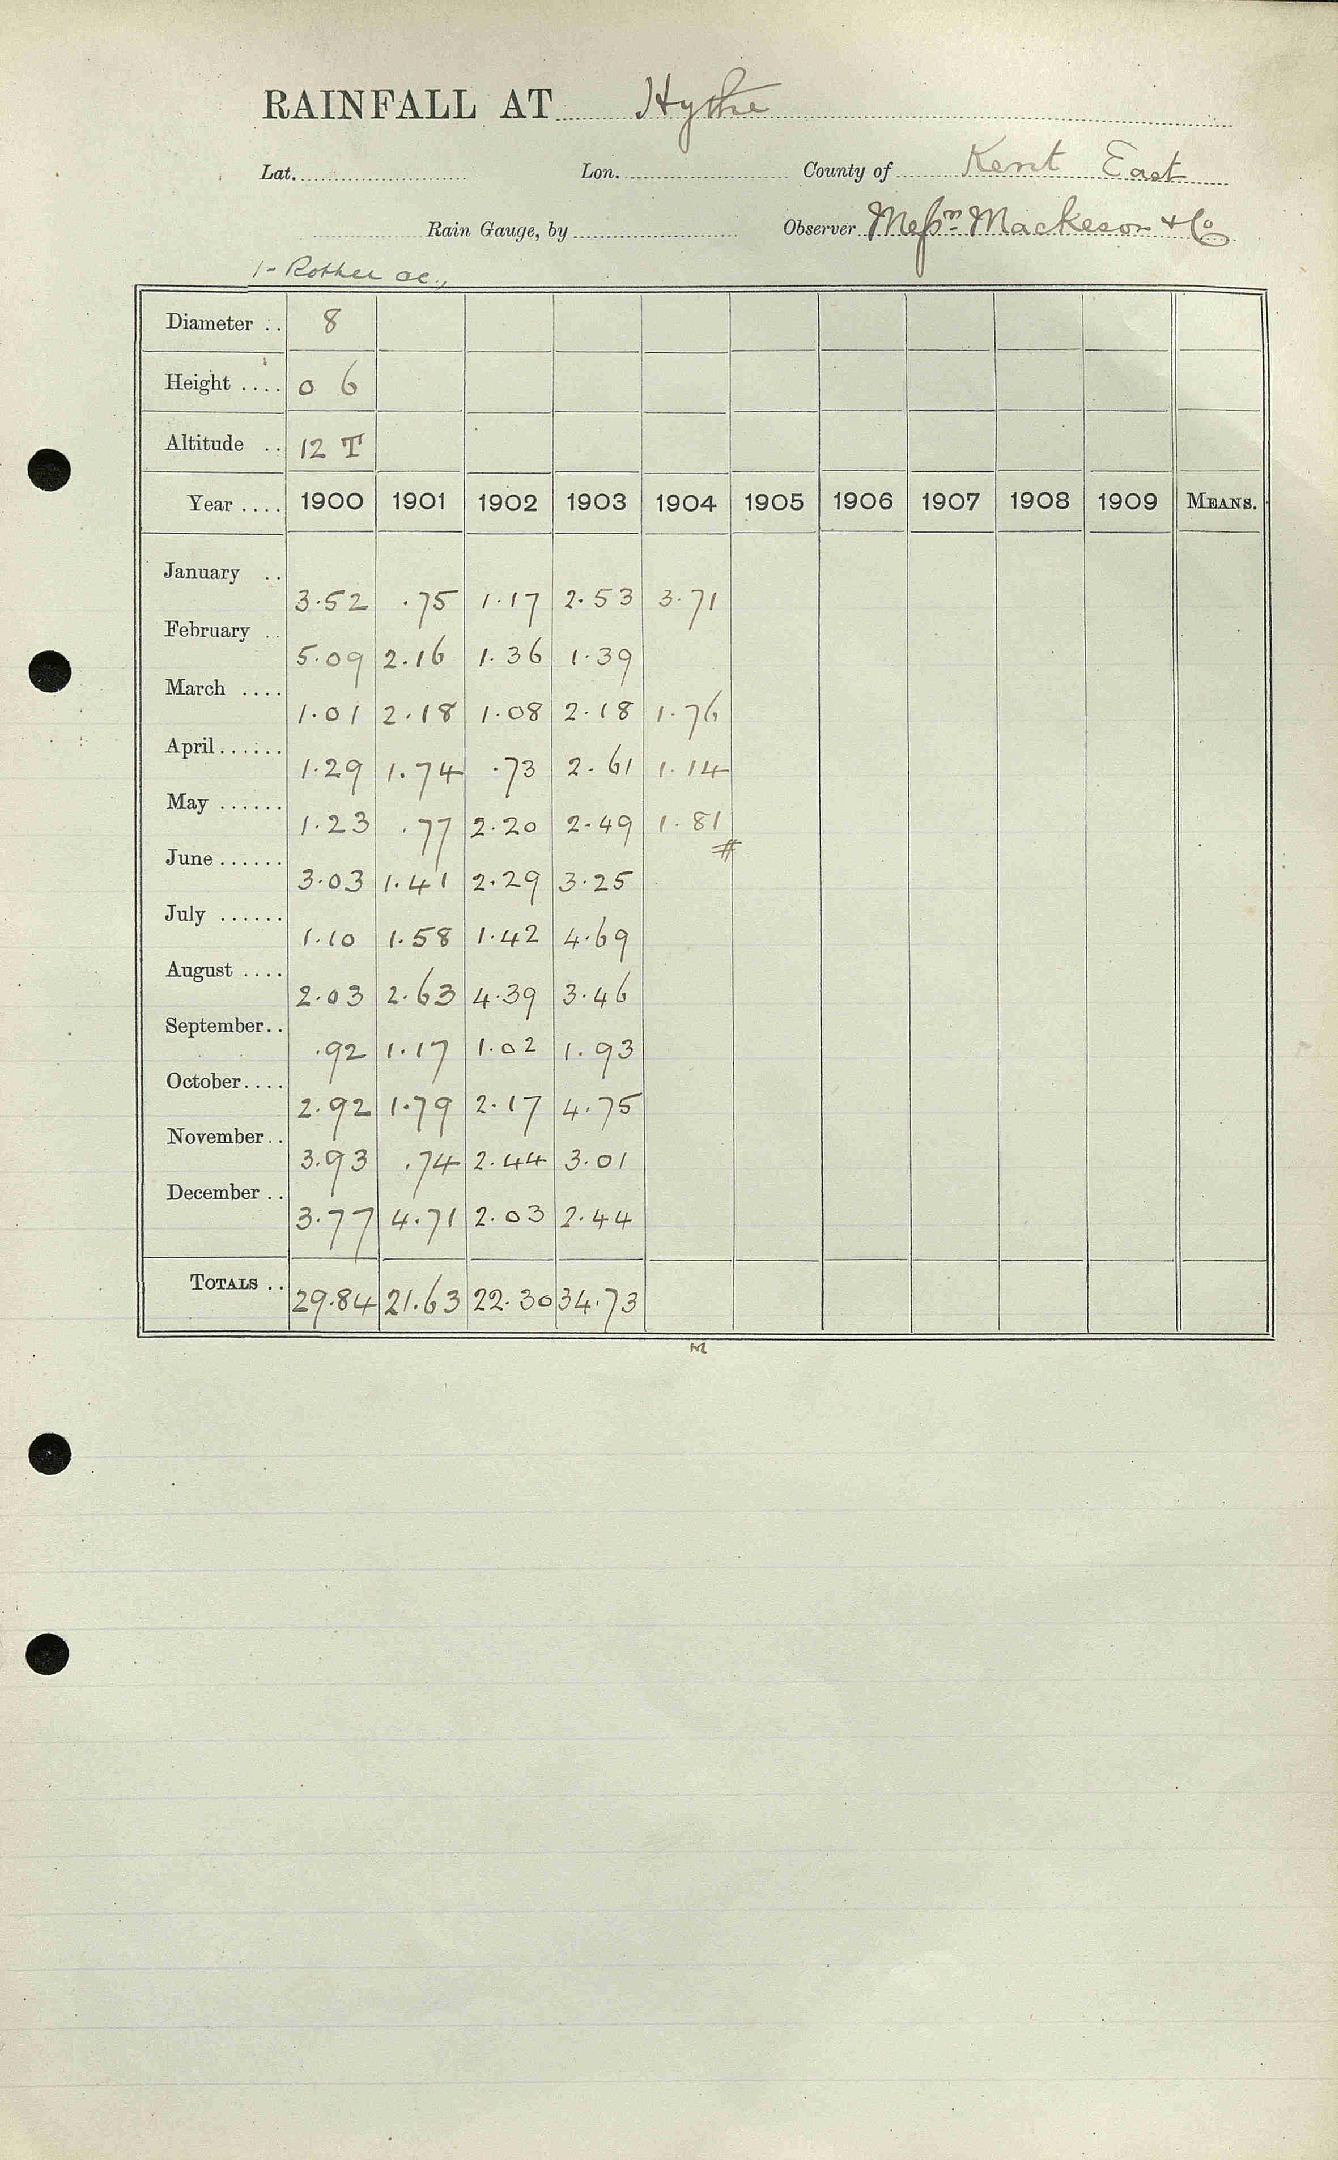 RAINFALL AT Hythe
Lat. Lon. County of Kent East
Rain Gauge, by Observer Messrs Mackeson & Co
1- Rother
Diameter .. 8
Height .... 0 6
Altitude .. 12 T
Year .... 1900 1901 1902 1903 1904 1905 1906 1907 1908 1909 MEANS.
January .. 3.52 .75 1.17 2.53 3.71
February .. 5.09 2.16 1.36 1.39
March .... 1.01 2.18 1.08 2.18 1.76
April...... 1.29 1.74 .73 2.61 1.14
May ...... 1.23 .77 2.20 2.49 1.81
#
June...... 3.03 1.41 2.29 3.25
July ...... 1.10 1.58 1.42 4.69
August .... 2.03 2.63 4.39 3.46
September.. .92 1.17 1.02 1.93
October.... 2.92 1.79 2.17 4.75
November.. 3.93 .74 2.44 3.01
December .. 3.77 4.71 2.03 2.44
TOTALS .. 29.84 21.63 22.30 34.73